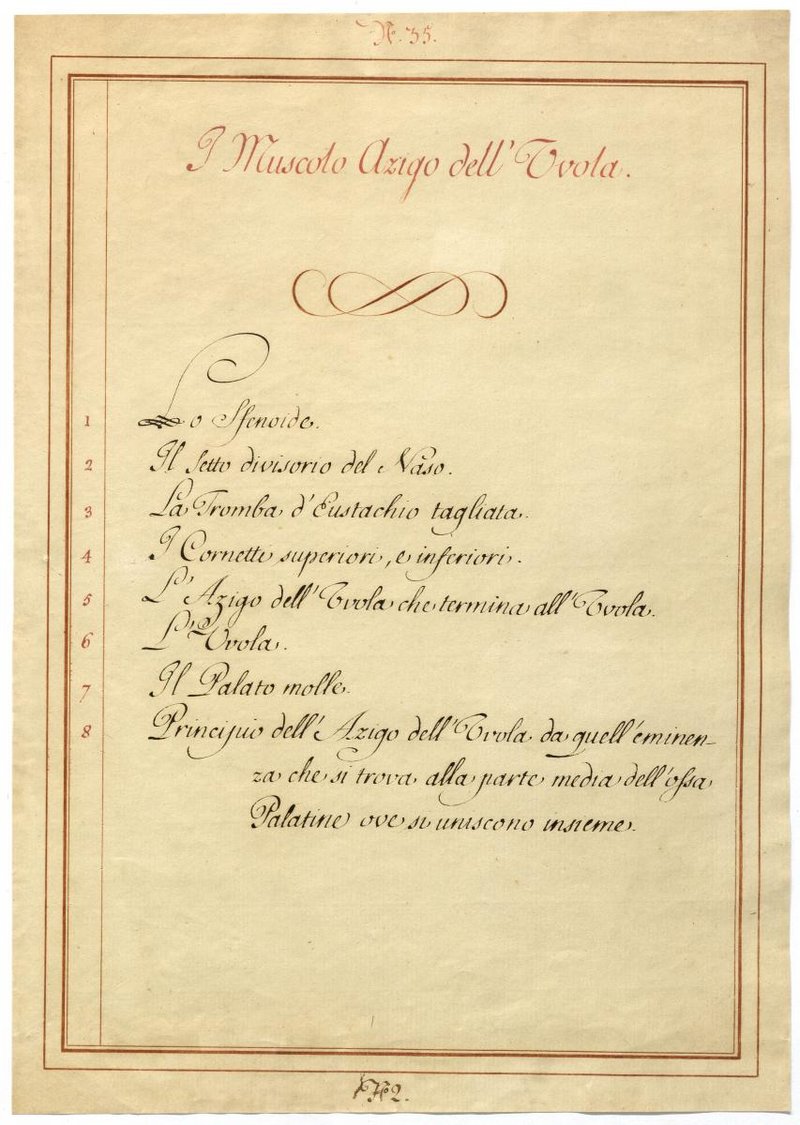 N. 35.
I Muscolo Azigo dell' Uvola.
1 Lo Sfenoide.
2 Il Setto divisorio del Naso.
3 La Tromba d'Eustachio tagliata.
4 I Cornetti superiori, e inferiori.
5 L'Azigo dell'Uvola che termina all'Uvola.
6 L'Uvola.
7 Il Palato molle.
8 Principio dell'Azigo dell'Uvola da quell'eminen-
za che si trova alla parte media dell'ossa
Palatine ove si uniscono insieme.